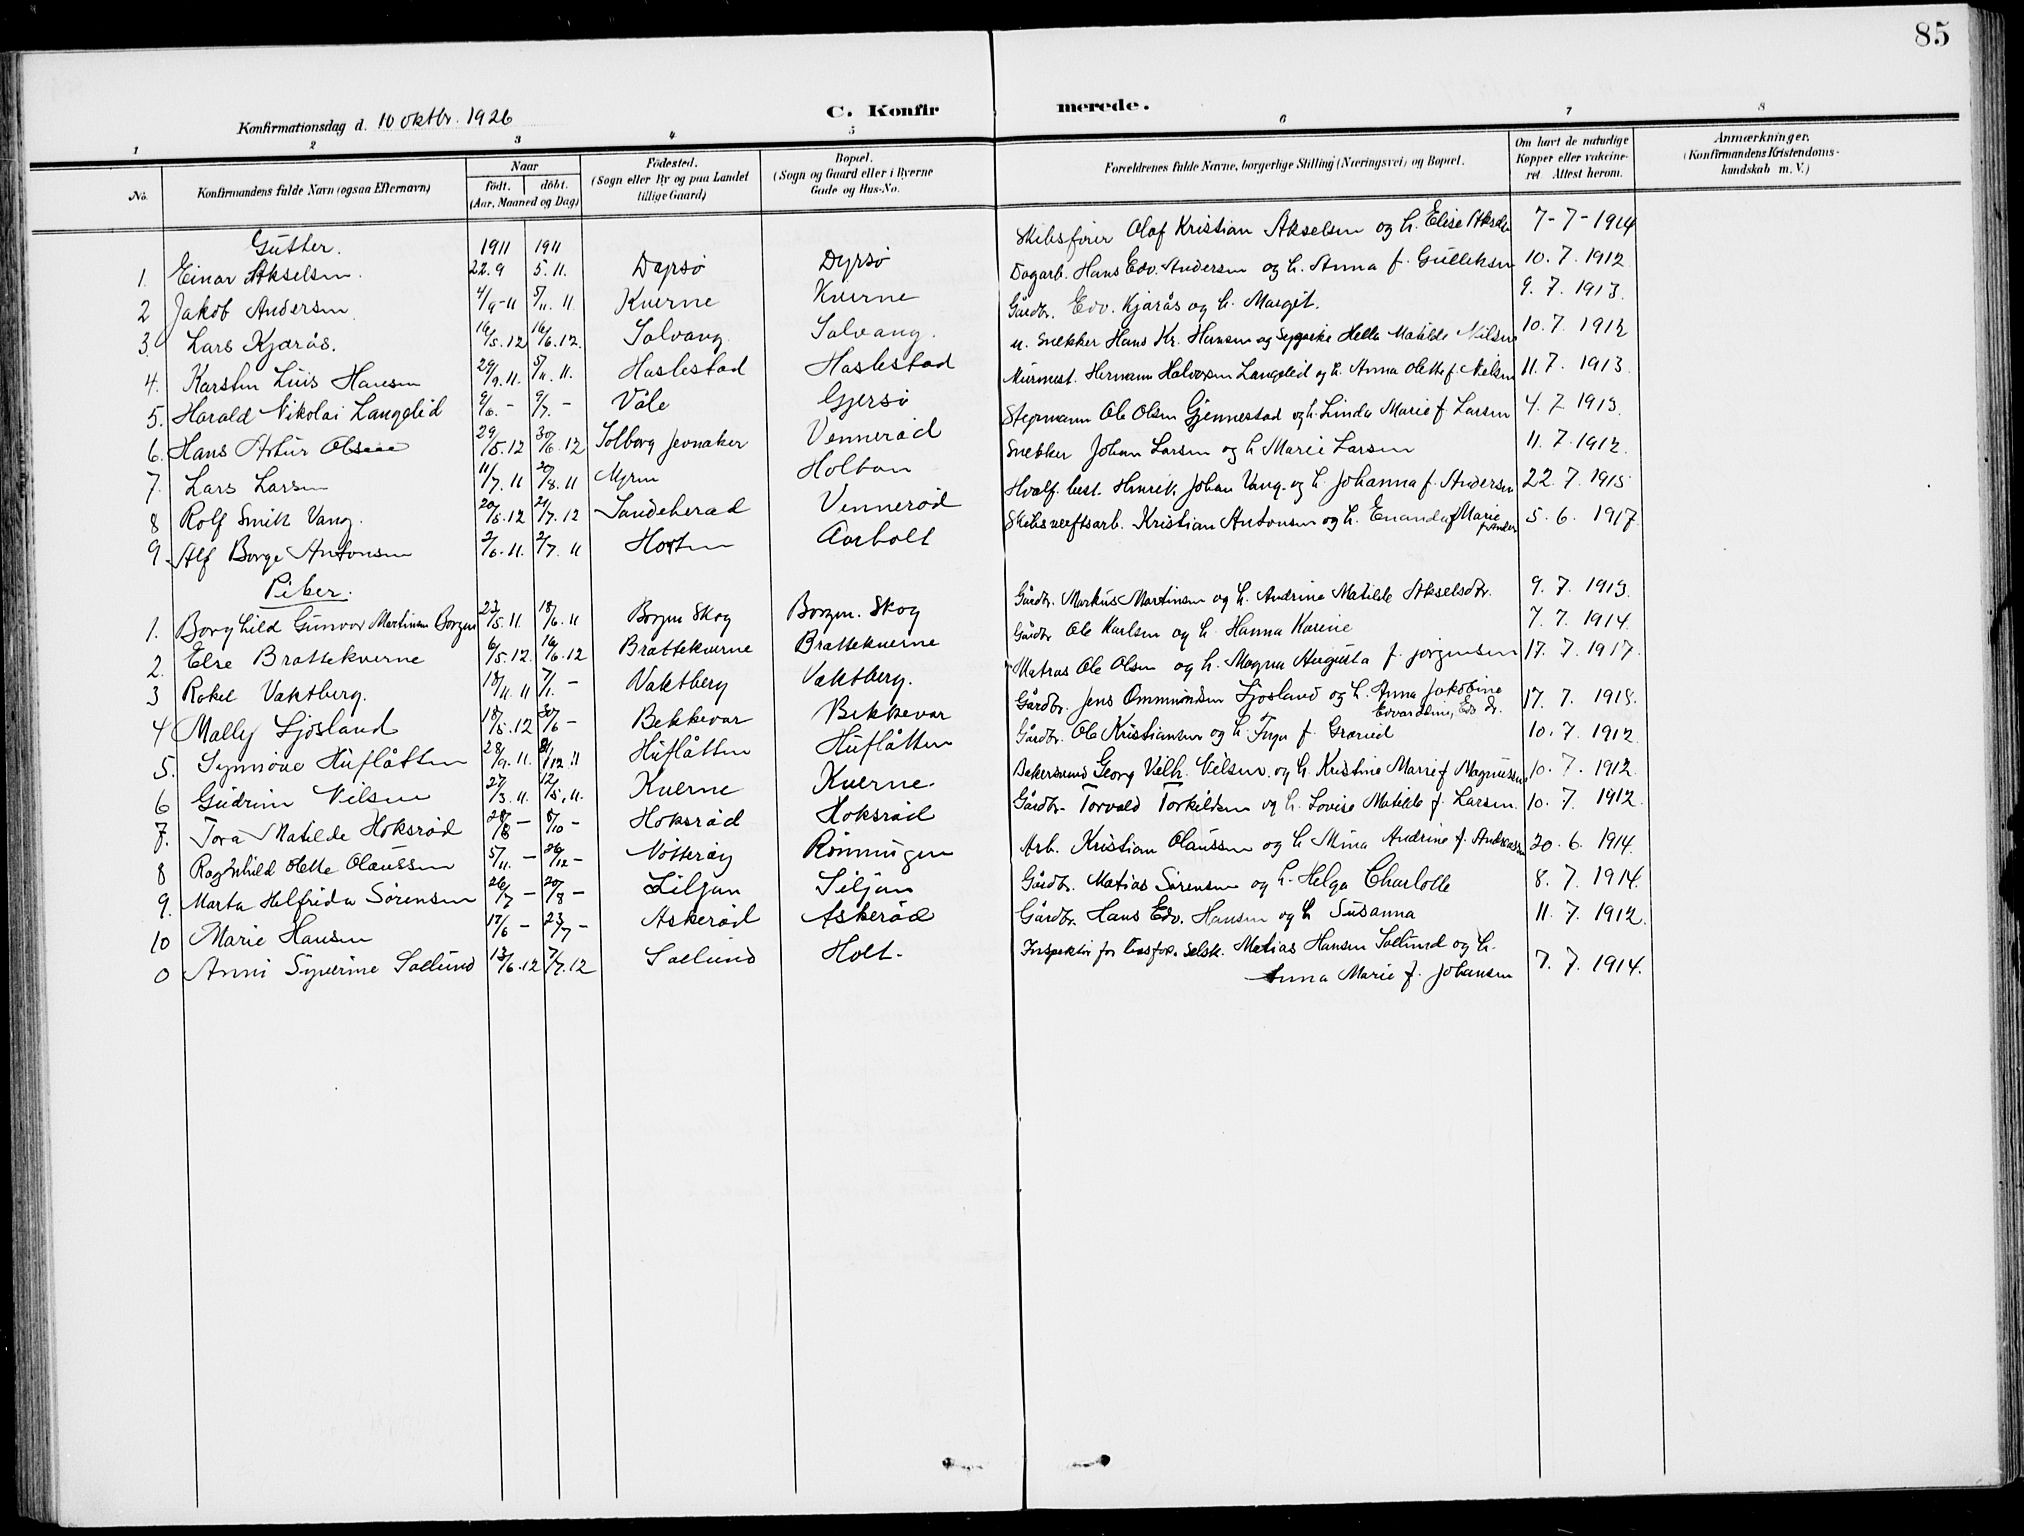 85
C. Konfirmerede.
Konfirmationsdag d. 10 oktbr. 1926
1 2 3 4 5 6 7 8
No. Konfirmandens fulde Navn (ogsaa Efternavn) Naar født. døbt. (Aar, Maaned og Dag) Fødested. (Sogn eller By og paa Landet tillige Gaard) Bopæl. (Sogn og Gaard eller i Byerne Gade og Hus-No. Forældrenes fulde Navne, borgerlige Stilling (Næringsvei) og Bopæl. Om havt de naturlige Kopper eller vakcineret Attest herom. Anmærkninger. (Konfirmandens Kristendomskundskab m. V.)
Gutter. 1911 1911
1. Einar Akselsen. 22.9 5.11. Dyrsö Dyrsö Skibsfører Olaf Kristian Akselsen og h. Elise Akselsen 7-7-1914
2 Jakob Andersen. 4/9-11 5/11.11. Kverne Kverne Dagarb. Hans Edv. Andersen og h. Anna f. Gulliksen 10.7.1912
3. Lars Kjærås. 16/5.12 16/6.12. Solvang Solvang. Gårdbr. Edv. Kjærås og h. Margit. 9.7.1913.
4. Karsten Luis Hansen 29/9.11. 5/11.11. Haslestad Haslestad u. Snekker Hans Kr. Hansen og Sypike Hella Matilde Nilsen 10.7.1912
5. Harald Nikolai Langelid 9/6.- 9/7.- Våle Gjersö Murmest. Hermann Halvorsen Langelid og h. Anna Olette f. Nielsen 11.7.1913.
6. Hans Artur Olsen 29/5.12 30/6.12 Solberg Jevnaker Vennerød Ole Olsen Gjennestad og h. Linda Marie f. Larsen 4.7.1913.
7. Lars Larsen 11/7.11 20/8.11 Myren Holtan Snekker Johan Larsen og h. Marie Larsen 11.7.1912.
8 Rolf Smith Vang. 20/5.12 21/7.12 Sandeherad Vennerød Hvalf. best. Henrik Johan Vang. og h. Johanna f. Andersen 22.7.1915
9. Alf Borge Antonsen 2/6.11. 2/7.11 Horten Aarholt Skibsverftsarb. Kristian Antonsen og h. Enanda Marie f. Ander 5.6.1917
Piker.
1. Borghild Gunvor Martinsen Borgen 23/5.11. 18/6.11 Borgen Skog Borgen. Skog Gårdbr. Markus Martinsen og h. Andrine Matilde Akselsdtr. 9.7.1913.
2. Else Brattekverne 6/5.12. 16/6.12 Brattekverne Brattekverne Gårdbr Ole Karlsen og h. Hanna Karine 7.7.1914.
3 Rakel Vaktberg. 18/11.11 7/1.- Vaktberg Vaktberg. Matros Ole Olsen og h. Magna Augusta f. Jørgensen 17.7.1917.
4 Mally Ljosland 18/5.12 30/6- Bekkevar Bekkevar Gårdbr. Jens Ommundsen Ljosland og h. Anna Jakobine Edvardine, Edv dr. 17.7.1918.
5. Synnöve Huflåtten 28/9.11. 31/12.11 Huflåtten Huflåtten Gårdbr. Ole Kristiansen og h. Inga f. Gravid 10.7.1912
6 Gudrun Nilsen 27/3.11. 12/5.11. Kverne Kverne Bekersvend Georg Vilh. Nilsen og h. Kristine Marie f. Magnussen 10.7.1912.
7. Tora Matilde Hoksrød 28/8- 8/10- Hoksrød Hoksrød Gårdbr. Torvald Torkildsen og h. Lovise Matilde f. Larsen. 10.7.1912.
8 Ragnhild Olette Olaussen 5/11.- 26/12- Nötteröy Rönningen Arb. Kristian Olaussen og h Mina Andrine f. Andreassen 20.6.1914.
9. Marta Helfrida Sørensen 26/7- 20/8- Siljan Siljan Gårdbr. Matias Sørensen og h. Helga Charlotte 8.7.1914.
10 Marie Hansen 17/6- 23/7- Askerød Askerød Gårdbr. Hans Edv. Hansen og h Susanna 11.7.1912.
0 Anni Syverine Solund 13/6.12 7/7.12 Solund Holt. Inspektør for livsfors. Selsk. Matias Hansen Solund og h. Anna Marie f. Johansen 7.7.1914.